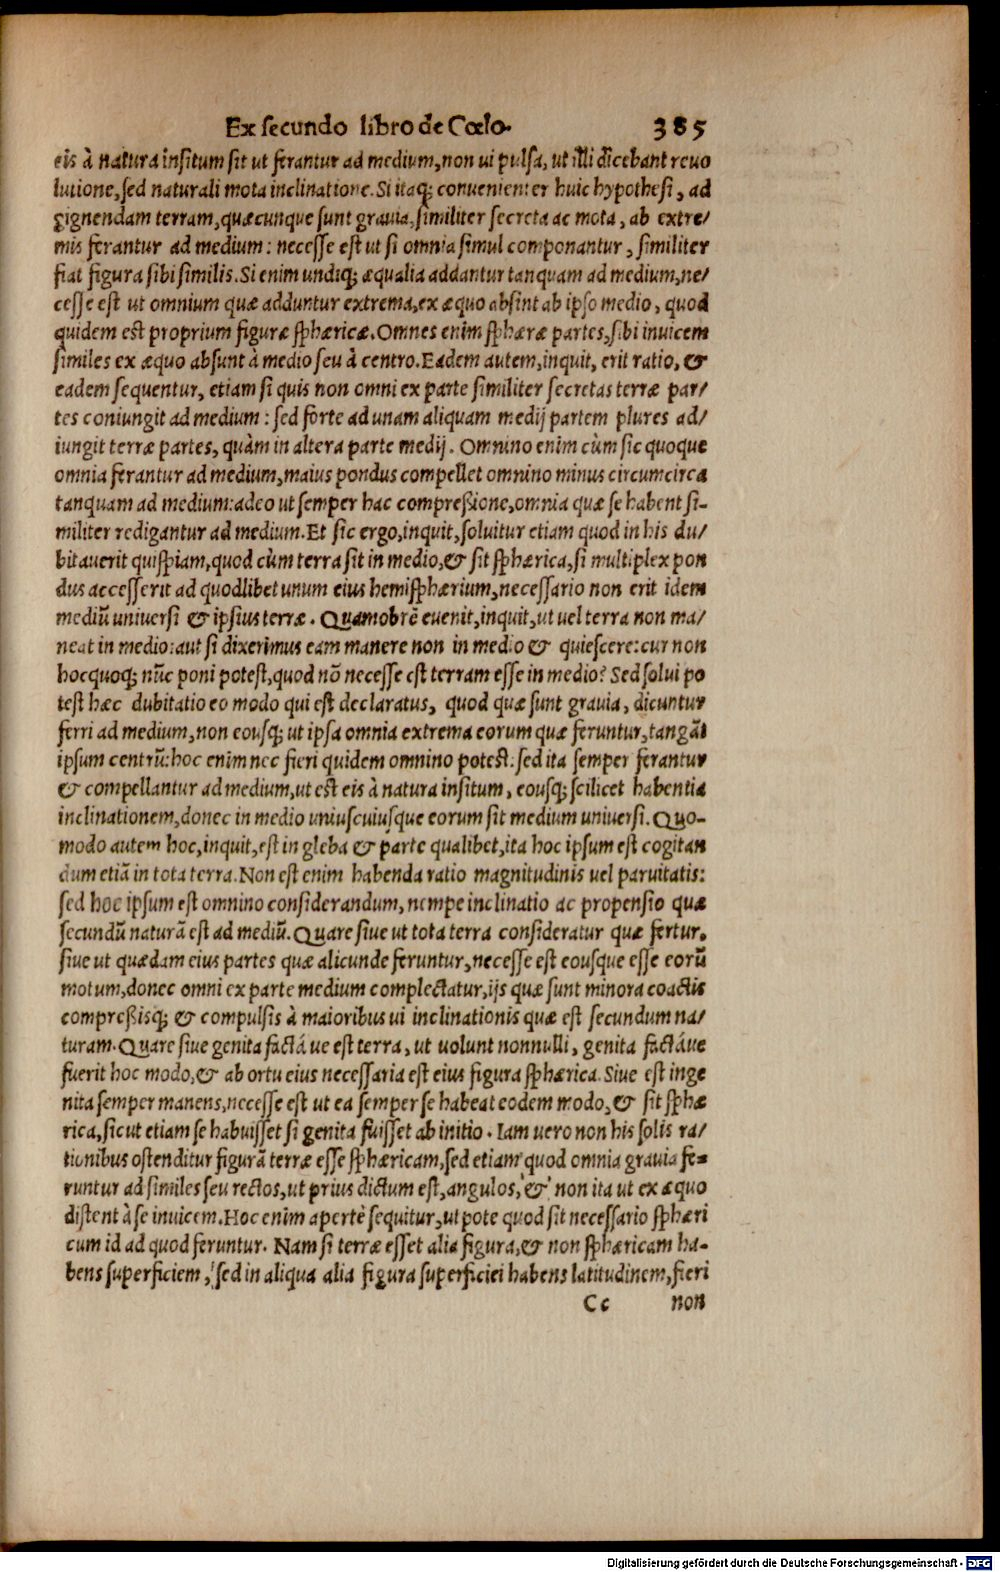 Ex secundo libro de Cœlo. 385
eis à natura insitum sit ut ferantur ad medium, non ui pulsa, ut illi dicebant revo
lutione, sed naturali mota inclinatione. Si itaq; convenienter huic hypothesi, ad
gignendam terram, quæcunque sunt gravia, similiter secreta ac mota, ab extre/
mis ferantur ad medium: necesse est ut si omnia simul componantur, similiter
fiat figura sibi similis. Si enim undiq; æqualia addantur tanquam ad medium, ne/
cesse est ut omnium quæ adduntur extrema, ex æquo absint ab ipso medio, quod
quidem est proprium figuræ sphæricæ. Omnes enim sphæræ partes, sibi invicem
similes ex æquo absunt à medio seu à centro. Eadem autem, inquit, erit ratio, &
eadem sequentur, etiam si quis non omni ex parte similiter secretas terræ par/
tes coniungit ad medium: sed forte ad unam aliquam medij partem plures ad/
iungit terræ partes, quàm in altera parte medij. Omnino enim cùm sic quoque
omnia ferantur ad medium, maius pondus compellet omnino minus circumcirca
tanquam ad medium: adeo ut semper hac compreßione, omnia quæ se habent si-
militer redigantur ad medium. Et sic ergo, inquit, soluitur etiam quod in his du/
bitaverit quispiam, quod cùm terra sit in medio, & sit sphærica, si multiplex pon
dus accesserit ad quodlibet unum eius hemisphærium, necessario non erit idem
mediũ universi & ipsius terræ. Quamobrẽ evenit, inquit, ut vel terra non ma/
neat in medio: aut si dixerimus eam manere non in medio & quiescere: cur non
hocquoq; nũc poni potest, quod nõ necesse est terram esse in medio? Sed solui po
test hæc dubitatio eo modo qui est declaratus, quod quæ sunt gravia, dicuntur
ferri ad medium, non eousq; ut ipsa omnia extrema eorum quæ feruntur, tangãt
ipsum centrũ: hoc enim nec fieri quidem omnino potest: sed ita semper ferantur
& compellantur ad medium, ut est eis à natura insitum, eousq; scilicet habentia
inclinationem, donec in medio uniuscuiusque eorum sit medium universi. Quo-
modo autem hoc, inquit, est in gleba & parte qualibet, ita hoc ipsum est cogitan
dum etiã in tota terra. Non est enim habenda ratio magnitudinis vel parvitatis:
sed hoc ipsum est omnino considerandum, nempe inclinatio ac propensio quæ
secundũ naturã est ad mediũ. Quare sive ut tota terra consideratur quæ fertur,
sive ut quædam eius partes quæ alicunde feruntur, necesse est eousque esse eorũ
motum, donec omni ex parte medium complectatur, ijs quæ sunt minora coactis
compreßisq; & compulsis à maioribus vi inclinationis quæ est secundum na/
turam. Quare sive genita factá ve est terra, ut volunt nonnulli, genita factáve
fuerit hoc modo, & ab ortu eius necessaria est eius figura sphærica. Sive est inge
nita semper manens, necesse est ut ea semper se habeat eodem modo, & sit sphæ
rica, sicut etiam se habuisset si genita fuisset ab initio. Iam vero non his solis ra/
tionibus ostenditur figurã terræ esse sphæricam, sed etiam quod omnia gravia fe=
runtur ad similes seu rectos, ut prius dictum est, angulos, & non ita ut ex æquo
distent à se invicem. Hoc enim apertè sequitur, ut pote quod sit necessario sphæri
cum id ad quod feruntur. Nam si terræ esset alia figura, & non sphæricam ha-
bens superficiem, sed in aliqua alia figura superficiei habens latitudinem, fieri
Cc non
Digitalisierung gefördert durch die Deutsche Forschungsgemeinschaft - DFG